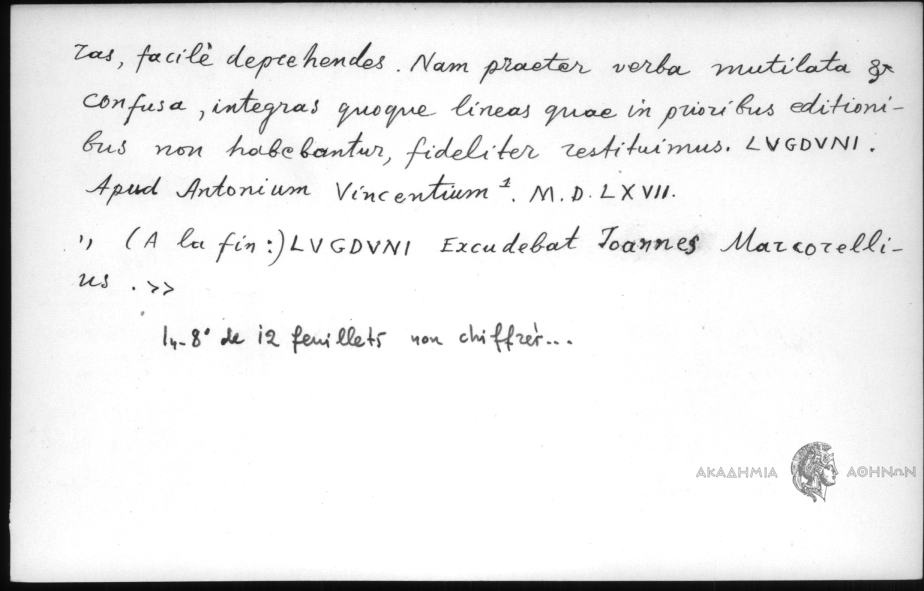 ras, facilè deprehendes. Nam praeter verba mutilata &
confusa, integras quoque lineas quae in prioribus editioni-
bus non habebantur, fideliter restituimus. LVGDVNI.
Apud Antonium Vincentium¹. M.D. LXVII.
" (A la fin:) LVGDVNI Excudebat Ioannes Marcorelli-
us . >>
In-8° de 12 feuillets non chiffrés...
ΑΚΑΔΗΜΙΑ ΑΘΗΝΩΝ